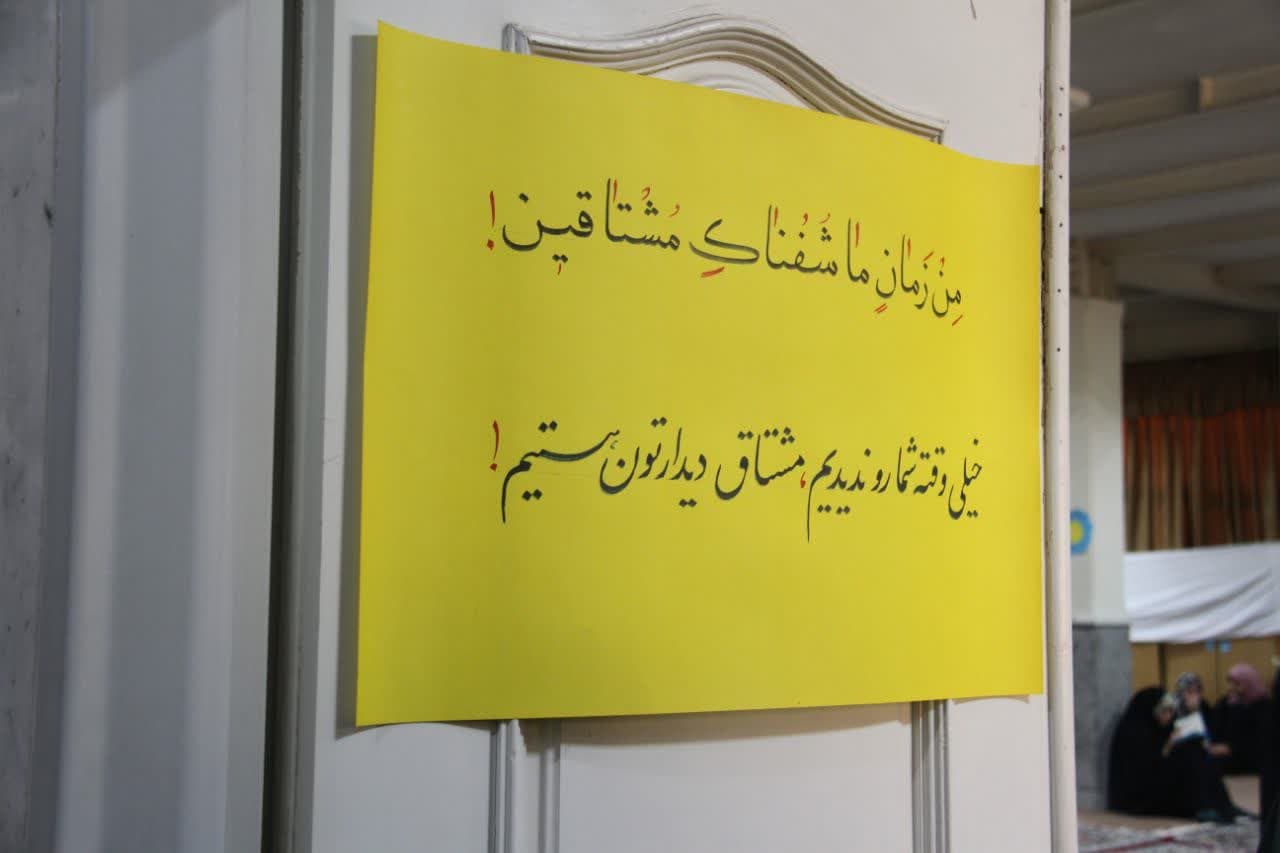 مِنْ زَمانٍ ما شُفْناكِ مُشْتاقين!
خیلی وقته شما رو ندیدیم، مشتاق دیدارتون هستیم!